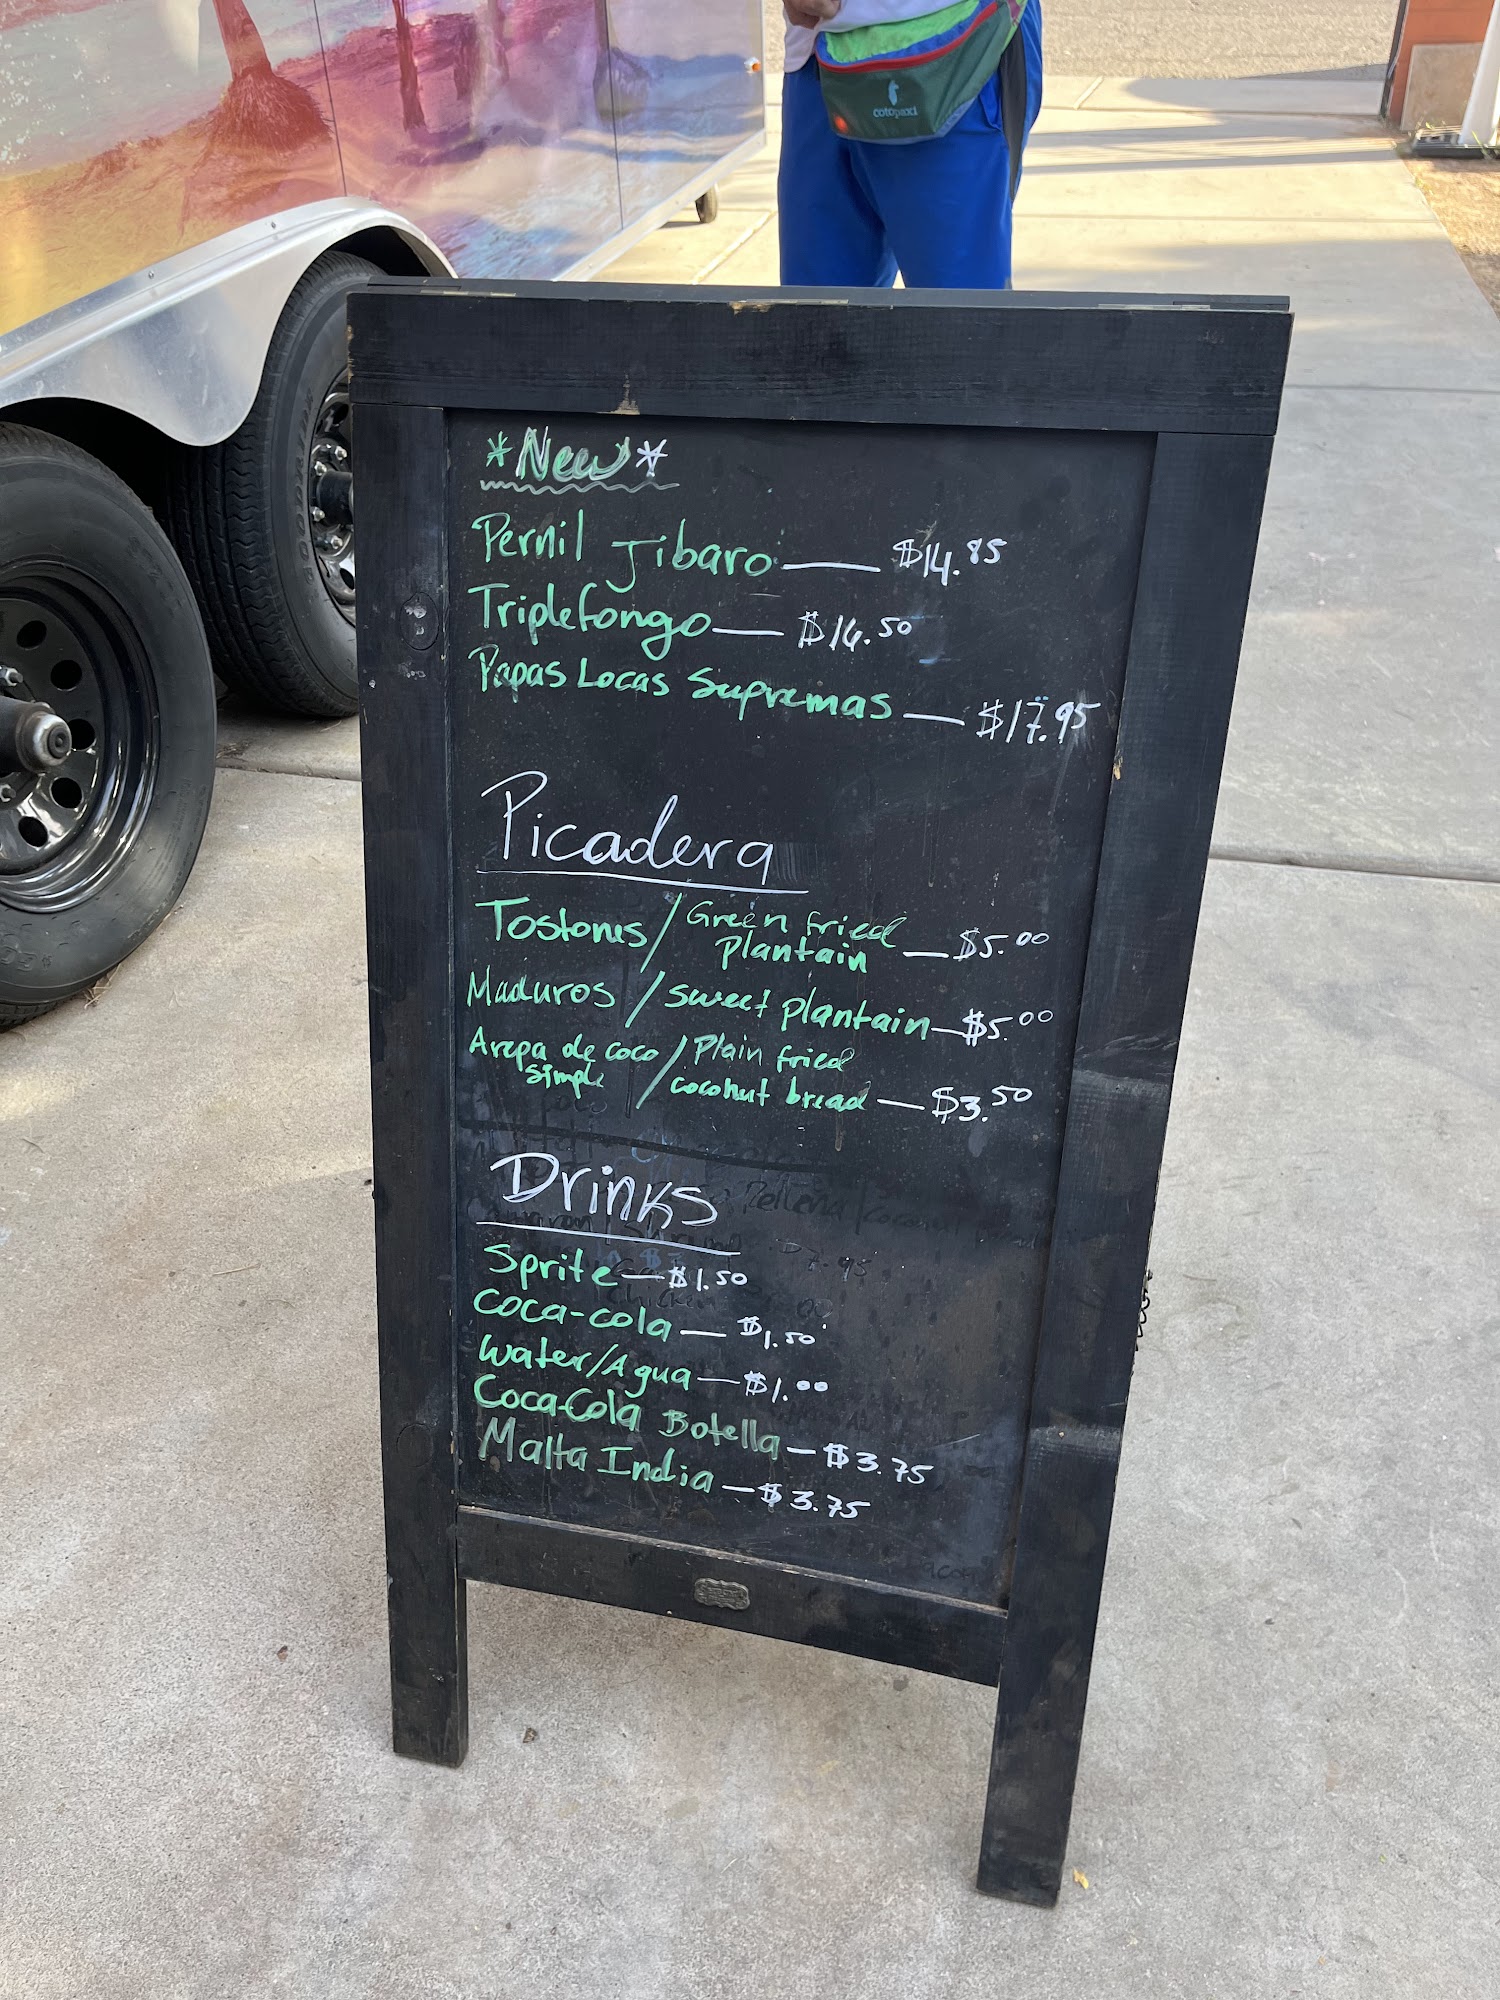 cotopaxi
*New*
Pernil Jibaro — $14.85
Triplefongo — $16.50
Papas Locas Supremas — $17.95
Picadera
Tostones / Green fried
plantain — $5.00
Maduros / sweet plantain — $5.00
Arepa de coco / Plain fried
simple / coconut bread — $3.50
Drinks
Sprite — $1.50
Coca-cola — $1.50
Water/Agua — $1.00
Coca-Cola Botella — $3.75
Malta India — $3.75